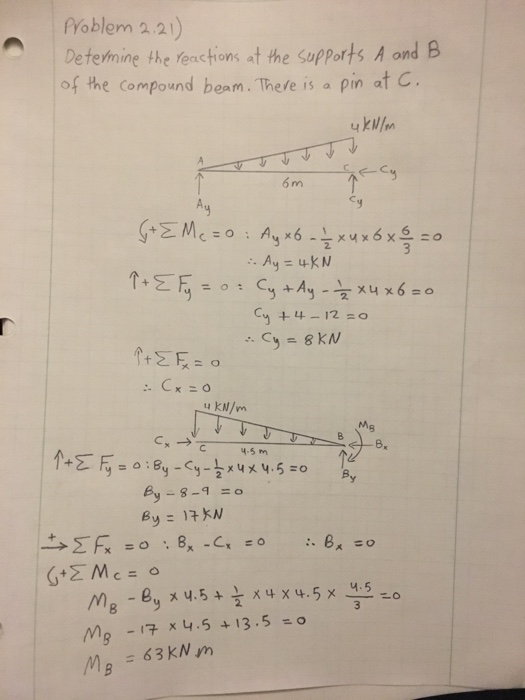 Problem 2.21)
Determine the reactions at the supports A and B
of the compound beam. There is a pin at C.
4 KN/m
A
C ← Cy
6m
Ay
Cy
↺+ΣMc = 0 : Ay×6 - 1/2 ×4×6× 6/3 = 0
∴ Ay = 4KN
↑+ΣFy = 0 : Cy + Ay - 1/2 ×4×6 = 0
Cy + 4 - 12 = 0
∴ Cy = 8 KN
↑+ΣFx = 0
∴ Cx = 0
4 KN/m
MB
Cx →
C
4.5 m
B
Bx
By
↑+ΣFy = 0 : By - Cy - 1/2 ×4×4.5 = 0
By - 8 - 9 = 0
By = 17KN
+→ ΣFx = 0 : Bx - Cx = 0 ∴ Bx = 0
↺+ΣMc = 0
MB - By × 4.5 + 1/2 × 4 × 4.5 × 4.5/3 = 0
MB - 17 × 4.5 + 13.5 = 0
MB = 63KN m